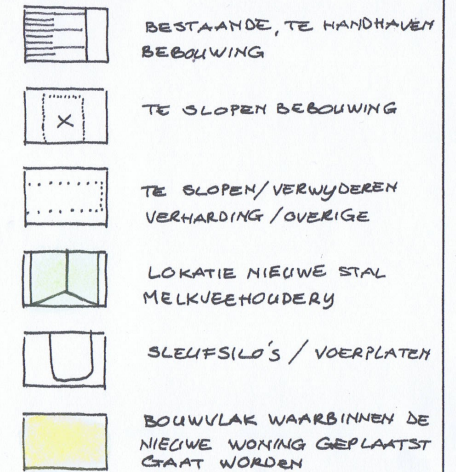 BESTAANDE, TE HANDHAVEN
BEBOUWING
TE SLOPEN BEBOUWING
TE SLOPEN/VERWIJDEREN
VERHARDING/OVERIGE
LOKATIE NIEUWE STAL
MELKVEEHOUDERIJ
SLEUFSILO'S / VOERPLATEN
BOUWVLAK WAARBINNEN DE
NIEUWE WONING GEPLAATST
GAAT WORDEN